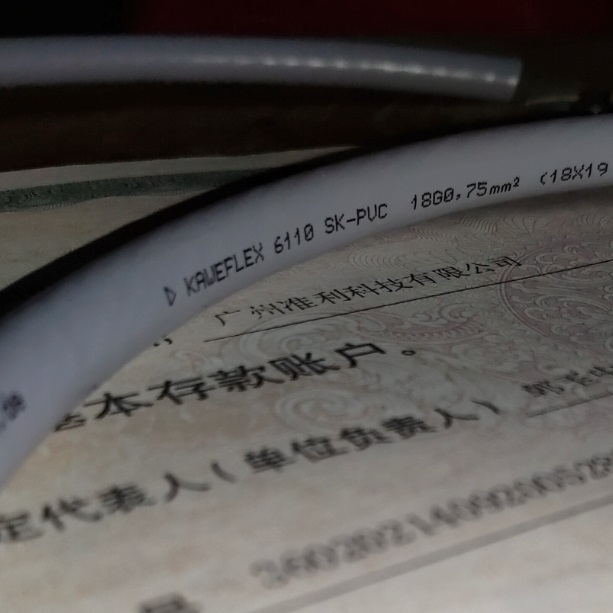 D KAWEFLEX 6110 SK-PVC 18G0,75mm² (18X19
广州准利科技有限公司
基本存款账户。
定代表人(单位负责人)
号